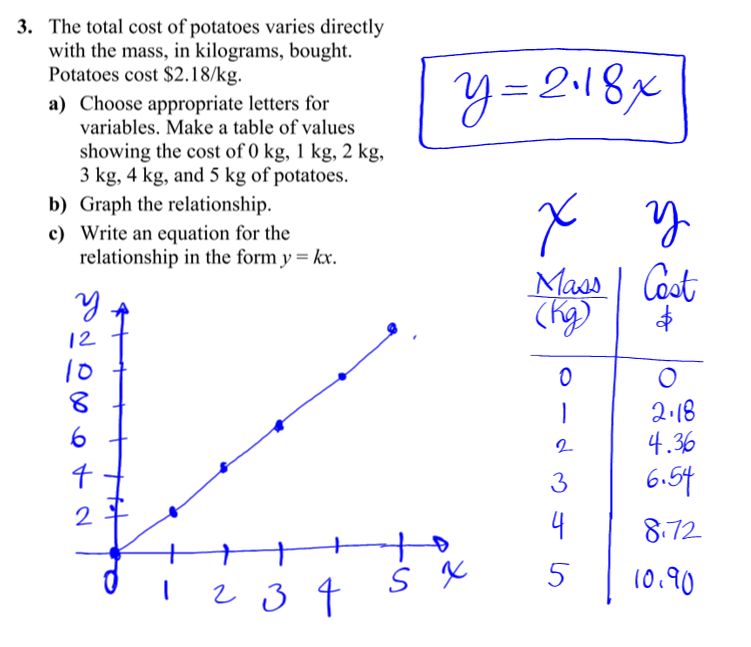 3. The total cost of potatoes varies directly
with the mass, in kilograms, bought.
Potatoes cost $2.18/kg.
a) Choose appropriate letters for
variables. Make a table of values
showing the cost of 0 kg, 1 kg, 2 kg,
3 kg, 4 kg, and 5 kg of potatoes.
b) Graph the relationship.
c) Write an equation for the
relationship in the form y = kx.
y = 2.18x
x y
Mass Cost
(kg) $
0 0
1 2.18
2 4.36
3 6.54
4 8.72
5 10.90
y
12
10
8
6
4
2
0 1 2 3 4 5 x